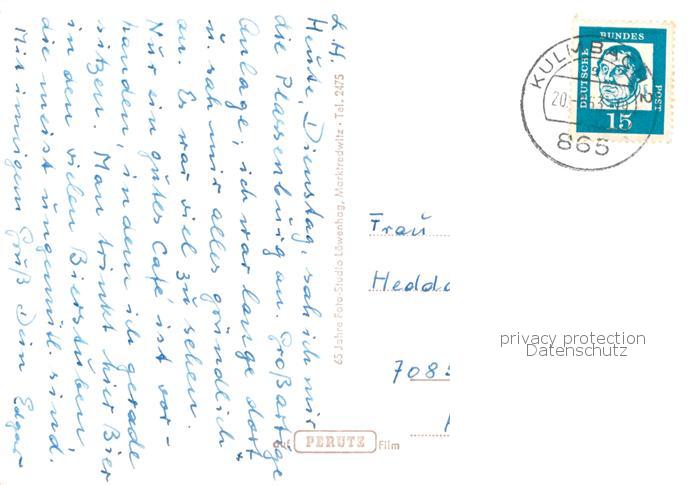 L. H.
Heute, Dienstag, sah ich mir
die Plassenburg an. Großartige
Anlage; ich war lange dort
u. sah mir alles gründlich
an. Es war viel zu sehen.
Nur ein gutes Café ist vor-
handen, in dem ich gerade
sitzen. Man trinkt hier Bier
in den vielen Bierstuben
die meist ungemütl. sind.
Mit innigem Gruß Dein Edgar
65 Jahre Foto-Studio Löwenhag, Marktredwitz · Tel. 2475
auf PERUTZ Film
DEUTSCHE BUNDES POST
15
KULMBACH 2
865
Frau
Hedda
7085
privacy protection
Datenschutz